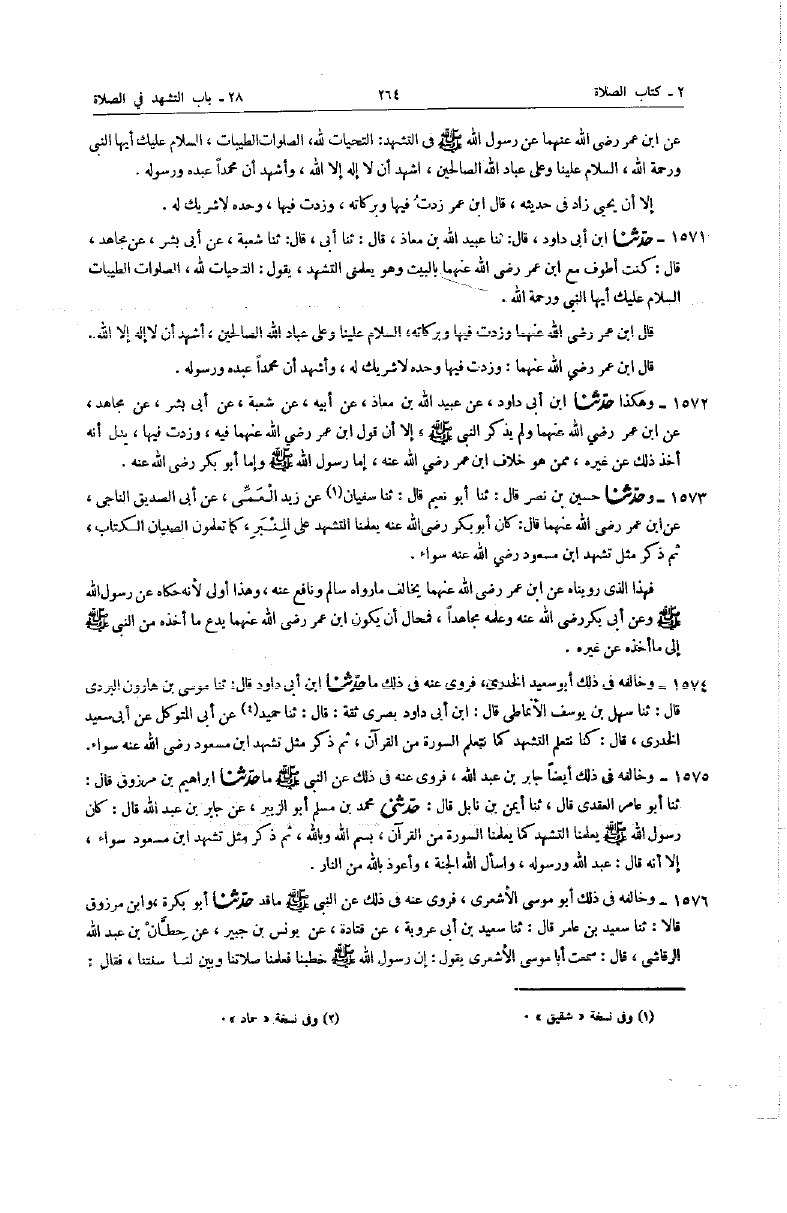 ٢ ـ كتاب الصلاة ٢٦٤ ٢٨ ـ باب التشهد في الصلاة
عن ابن عمر رضى الله عنهما عن رسول الله ﷺ فى التشهد: التحيات لله، الصلوات الطيبات ، السلام عليك أيها النبى
ورحمة الله ، السلام علينا وعلى عباد الله الصالحين ، اشهد أن لا إله إلا الله ، وأشهد أن محمداً عبده ورسوله .
إلا أن يحيى زاد فى حديثه ، قال ابن عمر زدتُ فيها وبركاته ، وزدت فيها ، وحده لاشريك له .
١٥٧١ ـ حدّثنا ابن أبى داود ، قال: ثنا عبيد الله بن معاذ ، قال : ثنا أبى ، قال: ثنا شعبة ، عن أبى بشر ، عن مجاهد ،
قال : كنت أطوف مع ابن عمر رضى الله عنهما بالبيت وهو يعلمنى التشهد ، يقول : التحيات لله ، الصلوات الطيبات
السلام عليك أيها النبي ورحمة الله .
قال ابن عمر رضي الله عنهما وزدت فيها وبركاته، السلام علينا وعلى عباد الله الصالحين ، أشهد أن لاإله إلا الله..
قال ابن عمر رضي الله عنهما : وزدت فيها وحده لاشريك له ، وأشهد أن محمداً عبده ورسوله .
١٥٧٢ ـ وهكذا حدّثنا ابن أبى داود ، عن عبيد الله بن معاذ ، عن أبيه ، عن شعبة ، عن أبى بشر ، عن مجاهد ،
عن ابن عمر رضي الله عنهما ولم يذكر النبى ﷺ ؛ إلا أن قول ابن عمر رضي الله عنهما فيه ، وزدت فيها ، يدل أنه
أخذ ذلك عن غيره ، ممن هو خلاف ابن عمر رضي الله عنه ، إما رسول الله ﷺ وإما أبو بكر رضي الله عنه .
١٥٧٣ ـ وحدّثنا حسين بن نصر قال : ثنا أبو نعيم قال : ثنا سفيان(١) عن زيد الْعَمِّى ، عن أبى الصديق الناجى ،
عن ابن عمر رضي الله عنهما قال: كان أبو بكر رضى الله عنه يعلمنا التشهد على المِنْبَرِ ، كما تعلمون الصبيان الكتاب ،
ثم ذكر مثل تشهد ابن مسعود رضي الله عنه سواء .
فهذا الذى رويناه عن ابن عمر رضي الله عنهما يخالف مارواه سالم ونافع عنه ، وهذا أولى لأنه حكاه عن رسول الله
ﷺ وعن أبى بكر رضى الله عنه وعلمه مجاهداً ، فمحال أن يكون ابن عمر رضي الله عنهما يدع ما أخذه من النبى ﷺ
إلى ماأخذه عن غيره .
١٥٧٤ ـ وخالفه فى ذلك أبو سعيد الخدرى، فروى عنه فى ذلك ما حدّثنا ابن أبى داود قال: ثنا موسى بن هارون البردى
قال : ثنا سهل بن يوسف الأنماطى قال : ابن أبى داود بصرى ثقة : قال : ثنا حميد(٤) عن أبى المتوكل عن أبى سعيد
الخدرى ، قال : كنا نتعلم التشهد كما نتعلم السورة من القرآن ، ثم ذكر مثل تشهد ابن مسعود رضي الله عنه سواء.
١٥٧٥ ـ وخالفه فى ذلك أيضاً جابر بن عبد الله ، فروى عنه فى ذلك عن النبى ﷺ ما حدّثنا ابراهيم بن مرزوق قال :
ثنا أبو عامر العقدى قال ، ثنا أيمن بن نابل قال : حدّثنى محمد بن مسلم أبو الزبير ، عن جابر بن عبد الله قال : كان
رسول الله ﷺ يعلمنا التشهد كما يعلمنا السورة من القرآن ، بسم الله وبالله ، ثم ذكر مثل تشهد ابن مسعود سواء ،
إلا أنه قال : عبد الله ورسوله ، واسأل الله الجنة ، وأعوذ بالله من النار .
١٥٧٦ ـ وخالفه فى ذلك أبو موسى الأشعرى ، فروى عنه فى ذلك عن النبى ﷺ ماقد حدّثنا أبو بكرة ،وابن مرزوق
قالا : ثنا سعيد بن عامر قال : ثنا سعيد بن أبى عروبة ، عن قتادة ، عن يونس بن جبير ، عن حِطَّانْ بن عبد الله
الرقاشى ، قال : سمعت أبا موسى الأشعرى يقول : إن رسول الله ﷺ خطبنا فعلمنا صلاتنا وبين لنا سنتنا ، فقال :
(١) وفى نسخة « شقيق » . (٢) وفى نسخة « حماد » .